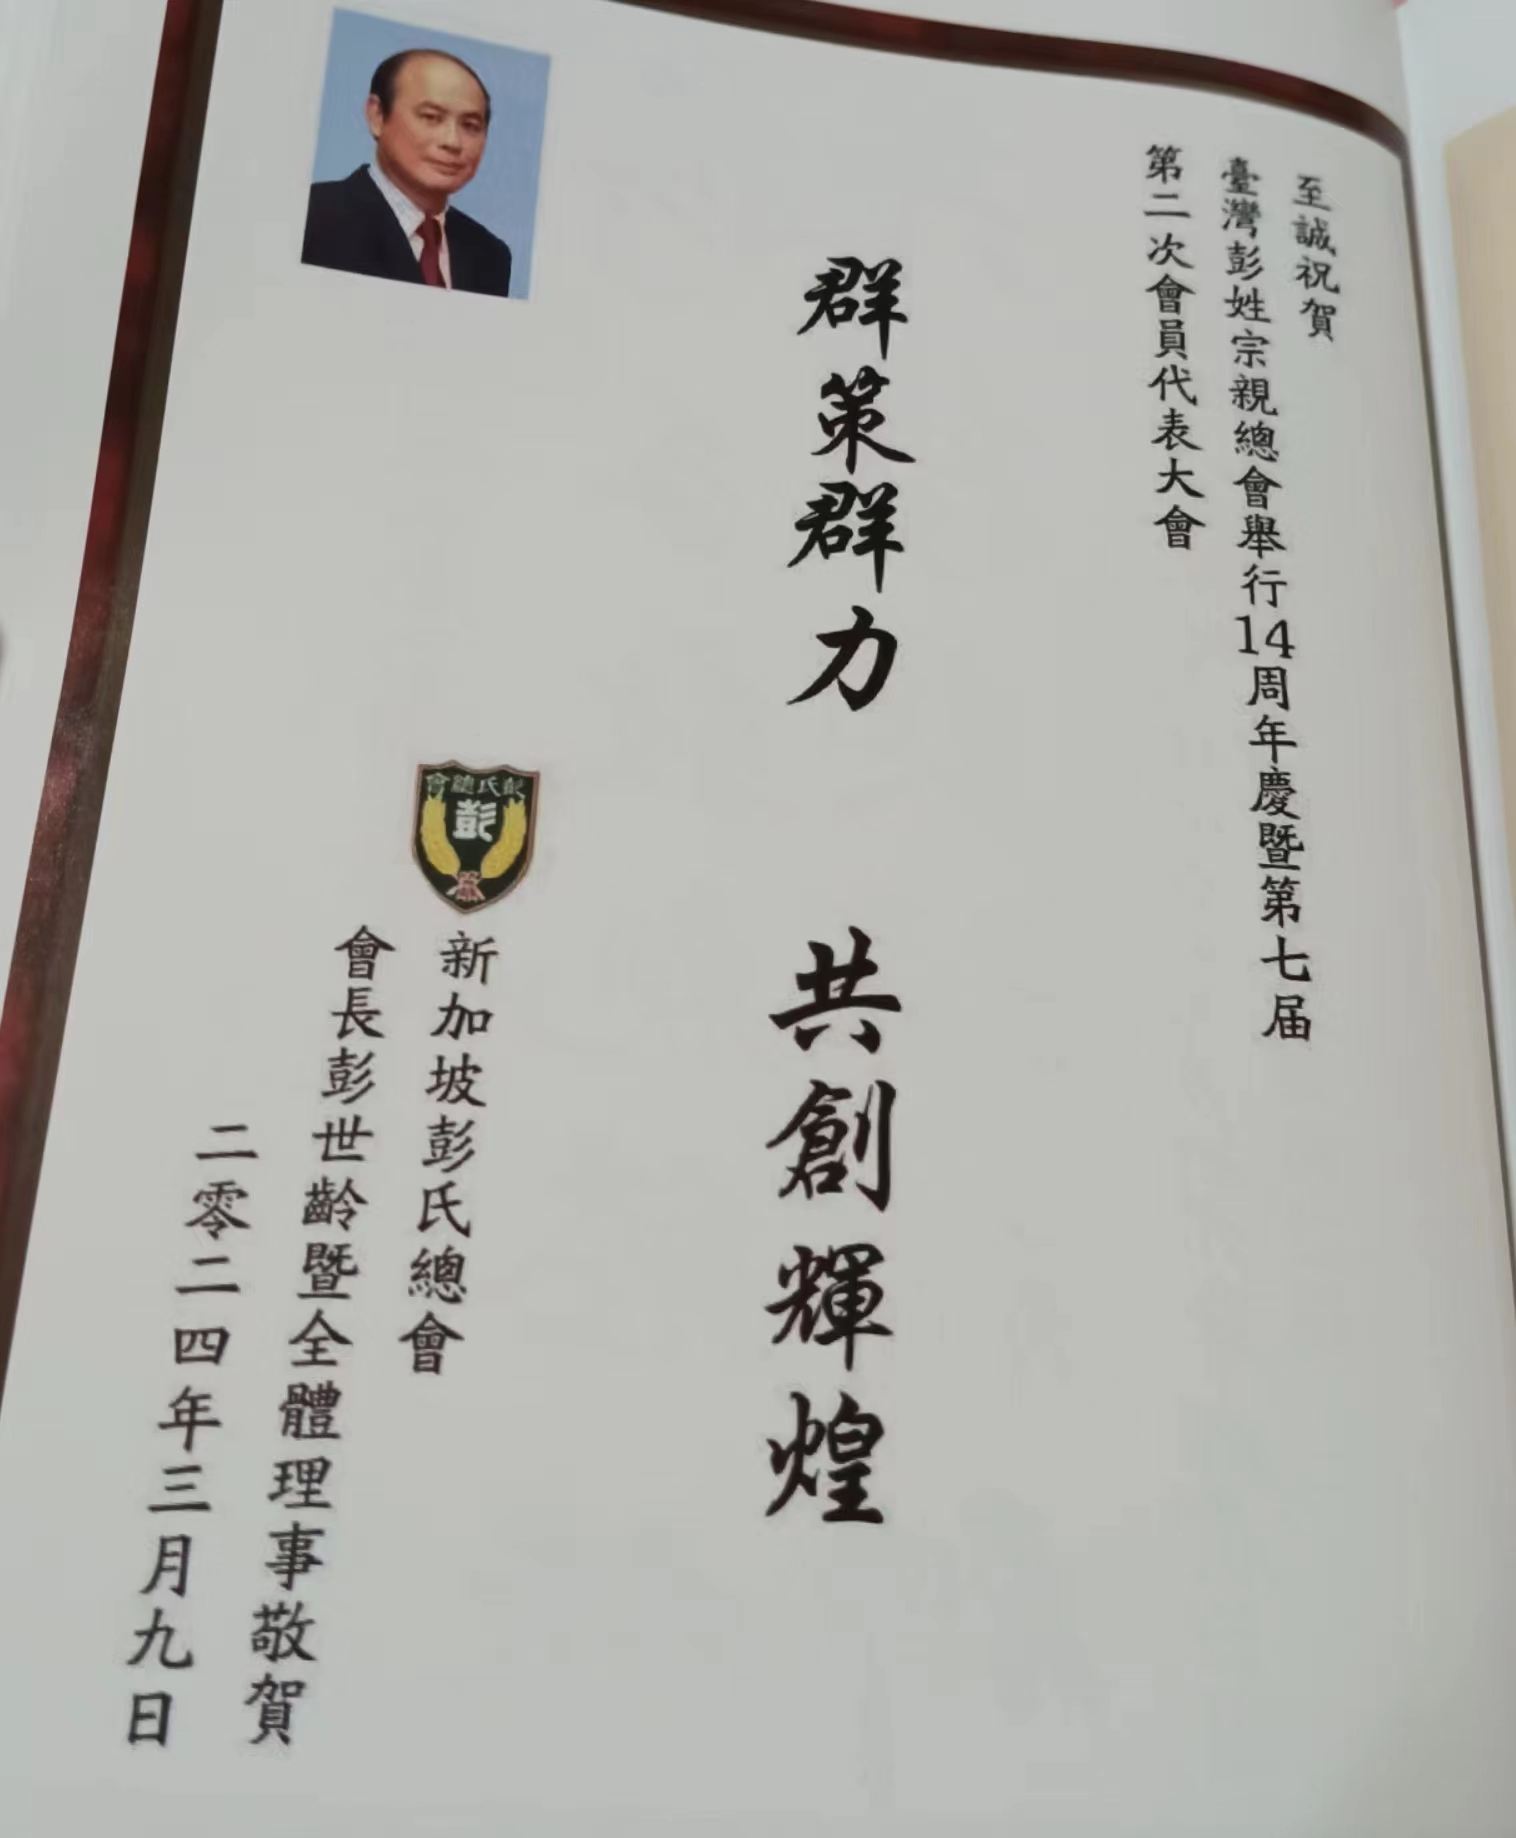 至誠祝賀
臺灣彭姓宗親總會舉行14周年慶暨第七届
第二次會員代表大會
群策群力 共創輝煌
彭氏總會
彭
新加坡彭氏總會
會長彭世齡暨全體理事敬賀
二零二四年三月九日